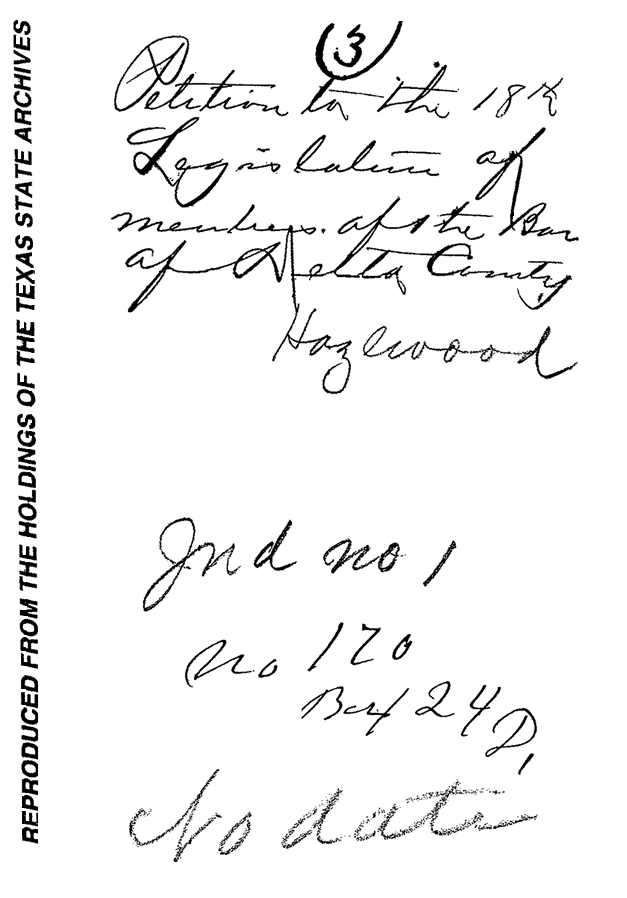 REPRODUCED FROM THE HOLDINGS OF THE TEXAS STATE ARCHIVES
3
Petition to the 18th
Legislature of
members of the Bar
of Delta County
Hazlewood
Jud no 1
no 170
Box 24 D,
No date